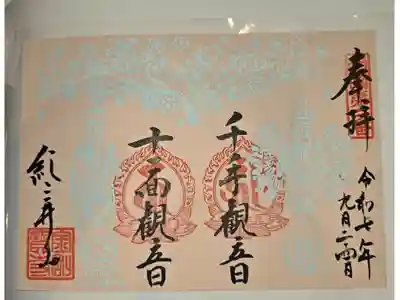 奉拝
令和七年
九月二四日
千手観音
十一面観音
紀三井寺